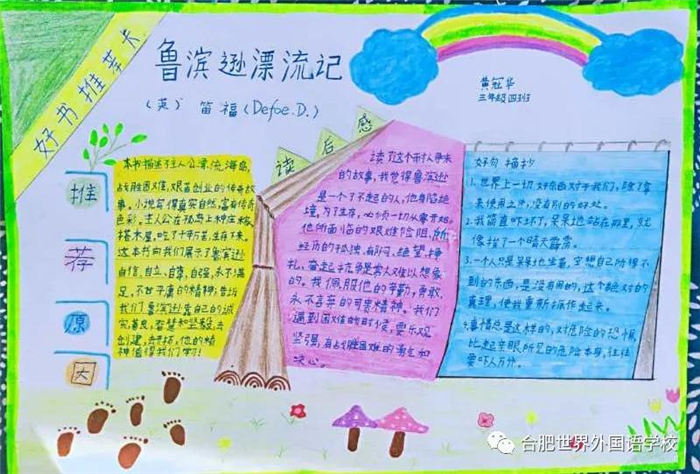 好书推荐卡
鲁滨逊漂流记
(英) 笛福(Defoe.D.)
黄冠华
三年级四班
推
荐
原
因
本书描述了主人公漂流海岛,
战胜困难,艰苦创业的传奇故
事。小说写得真实自然,富有传奇
色彩。主人公在孤岛上种庄稼,
搭木屋,吃了千辛万苦,生存下来。
这本书向我们展示了鲁滨逊
自信,自立,自尊,自强,永不满
足,不甘平庸的精神;告诉
我们鲁滨逊靠自己的
善良,智慧和坚毅去
创建,开拓,他的精
神值得我们学习!
读后感
读了这个
的故事,我觉得鲁滨逊
是一个了不起的人,他身陷绝
境,为了生存,必须一切从零开始,
他所面临的艰难险阻,所
经历的孤独,郁闷,绝望,挣
扎,奋起抗争是常人难以想象
的。我佩服他的辛勤,勇敢,
永不言弃的可贵精神。我们
遇到困难的时候,要乐观
坚强,有战胜困难的勇气和
决心。
好句摘抄
1.世界上一切好东西对于我们,除了拿
来使用之外,没有别的好处。
2.我简直吓坏了,呆呆地站在那里,就
像挨了一个晴天霹雳。
3.一个人只是呆呆地坐着,空想自己所得不
到的东西,是没有用的,这个绝对的
真理,使我重新振作起来。
4.事情总是这样的,对危险的恐惧
比起亲眼所见的危险本身,往往
要吓人万分。
合肥世界外国语学校